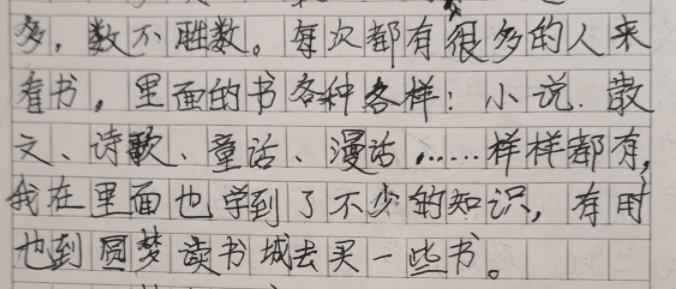 多，数不胜数。每次都有很多的人来
看书，里面的书各种各样：小说、散
文、诗歌、童话、漫话……样样都有，
我在里面也学到了不少的知识，有时
也到圆梦读书城去买一些书。